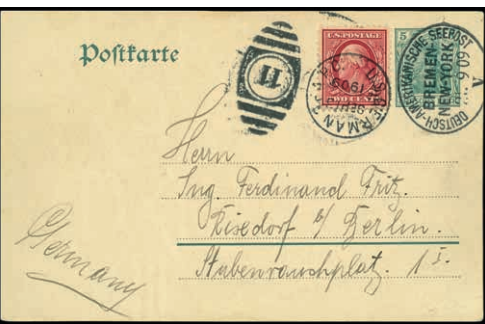 Postkarte
11
U.S. POSTAGE
TWO CENTS
5
DEUTSCH-AMERIKANISCHE SEEPOST
BREMEN-
NEW-YORK
6 09
A
1909
Herrn
Ing. Ferdinand Fritz.
b/ Berlin.
Stubenrauchplatz. 1 I.
Germany